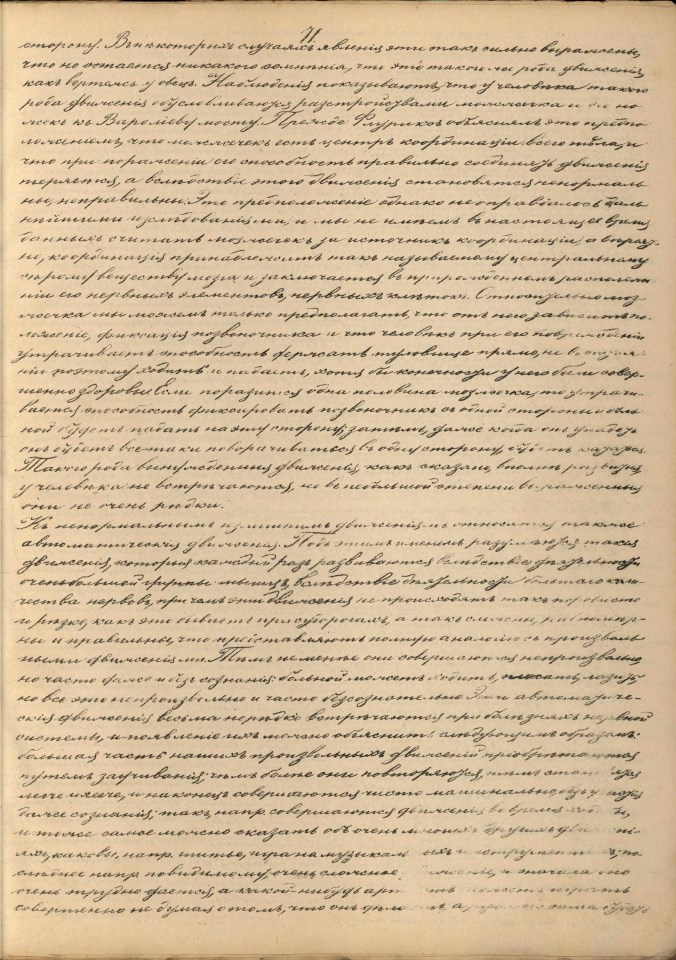 71.
сторону. Въ нѣкоторыхъ случаяхъ явленія эти такъ сильно выражены,
что не остается никакого сомнѣнія, что это такого же рода движенія,
какъ вертежъ у овецъ. Наблюденія показываютъ, что у человѣка такого
рода движенія обусловливаются разстройствами мозжечка и его но
жекъ къ Варолиеву мосту. Прежде объясняли это предпо
ложеніемъ, что мозжечекъ есть центръ координаціи всего тѣла, и
что при пораженіи его способность правильно соединять движенія
теряется, а вслѣдствіе этого движенія становятся ненормаль
ны, неправильны. Это предположеніе однако не оправдалось даль
нѣйшими изслѣдованіями, и мы не имѣемъ въ настоящее время
данныхъ считать мозжечекъ за источникъ координаціи, а
но, координація принадлежитъ такъ называемому центральному
сѣрому веществу мозга и заключается въ прирожденномъ расположе
ніи его нервныхъ элементовъ, нервныхъ клѣтокъ. Относительно моз
жечка мы можемъ только предполагать, что отъ него зависитъ по
ложеніе, фиксація позвоночника и что человѣкъ при его поврежденіи
утрачиваетъ способность держать туловище прямо, не въ
ніи поэтому ходить и падаетъ, хотя бы конечности у него были совер
шенно здоровы. Если поразится одна половина мозжечка, то утрачи
вается способность фиксировать позвоночникъ съ одной стороны и боль
ной будетъ падать на эту сторону; затѣмъ, даже когда онъ упадетъ
онъ будетъ все-таки поворачиваться въ одну сторону, будетъ
Такого рода вынужденныя движенія, какъ сказано, вполнѣ развитыя
у человѣка не встрѣчаются, но въ небольшой степени выраженныя
они не очень рѣдки.
Къ ненормальнымъ движеніямъ относятся также
автоматическія движенія. Подъ этимъ именемъ разумѣются такія
движенія, которыя каждый разъ развиваются вслѣдствіе дѣятельности
очень большой группы мышцъ, вслѣдствіе дѣятельности большаго коли
чества нервовъ, при чемъ эти движенія не происходятъ такъ порывисто
и рѣзко, какъ это бываетъ при судорогахъ, а такъ сложны, равномѣр
ны и правильны, что представляютъ полную аналогію съ произволь
ными движеніями. Тѣмъ не менѣе они совершаются непроизвольно
но часто даже и безъ сознанія: больной можетъ ходить, плясать, лазить
но все это непроизвольно и часто безсознательно. Эти автоматиче
скія движенія весьма нерѣдко встрѣчаются при болѣзняхъ нервной
системы, и появленіе ихъ можно объяснить слѣдующимъ образомъ:
большая часть нашихъ произвольныхъ движеній пріобрѣтается
путемъ заучиванія: чѣмъ болѣе они повторяются, тѣмъ
легче и легче, и наконецъ совершаются чисто машинально, безъ
даже сознанія; такъ, напр. совершаются движенія во время ходьбы,
и тоже самое можно сказать объ очень многихъ другихъ движені
яхъ, каковы, напр. шитье, игра на музыкальныхъ инструментахъ; по
слѣднее напр. повидимому, очень сложное и сначала оно
очень трудно дается, а какой нибудь играть
совершенно не думая о томъ, что онъ дѣлаетъ, а